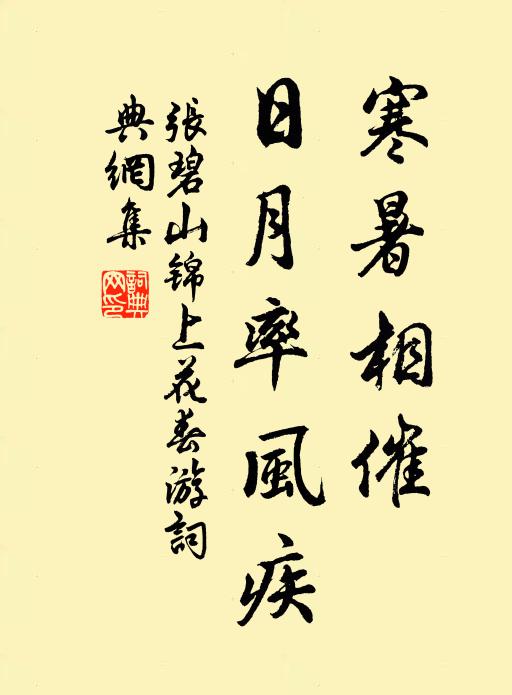 寒暑相催
日月率風疾
張碧山錦上花春游詞
典網集
詞典網印